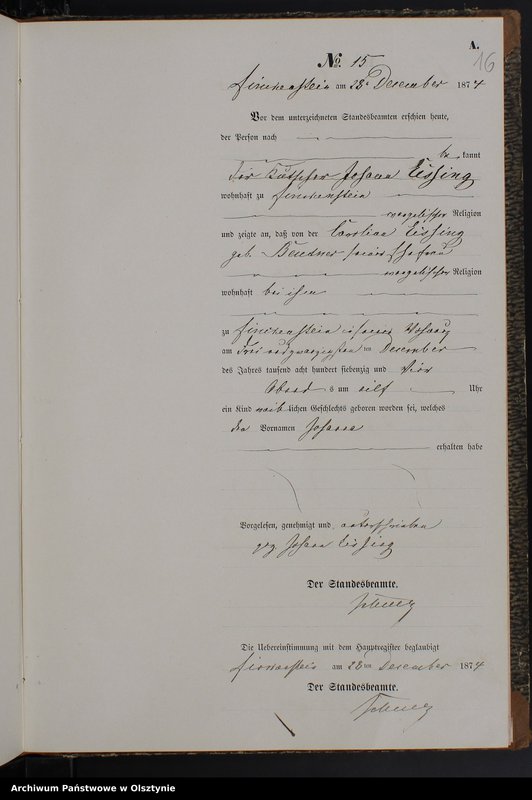 A.
16
No. 15
Finckenstein am 28t December 1874
Vor dem unterzeichneten Standesbeamten erschien heute,
der Person nach
be kannt
der Kutscher Johann Eissing
wohnhaft zu Finckenstein
evangelischer Religion
und zeigte an, daß von der Caroline Eissing
geb. seiner Ehefrau
evangelischer Religion
wohnhaft bei ihm
zu Finckenstein in seiner Wohnung
am drei und zwanzigsten ten December
des Jahres tausend acht hundert siebenzig und vier
Abend s um eilf Uhr
ein Kind weib lichen Geschlechts geboren worden sei, welches
den Vornamen Johanna
erhalten habe
Vorgelesen, genehmigt und unterschrieben
gez. Johann Eissing
Der Standesbeamte.
Die Uebereinstimmung mit dem Hauptregister beglaubigt
Finckenstein am 28 ten December 1874
Der Standesbeamte.
Archiwum Państwowe w Olsztynie